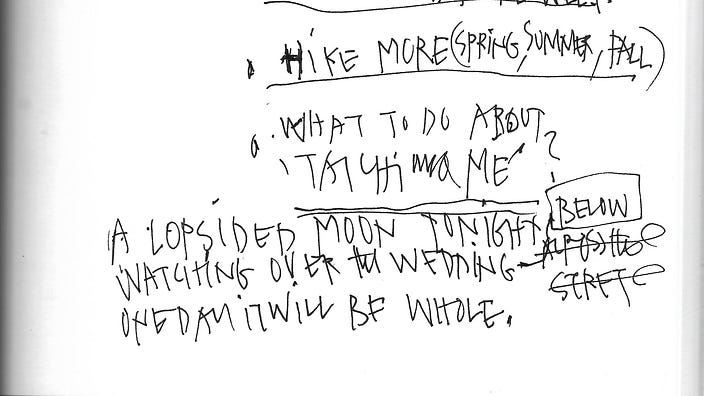 • HIKE MORE (SPRING, SUMMER, FALL)
• WHAT TO DO ABOUT
ME" ?
BELOW
A LOPSIDED MOON TONIGHT
WATCHING OVER WEDDING
ONE DAY IT WILL BE WHOLE.